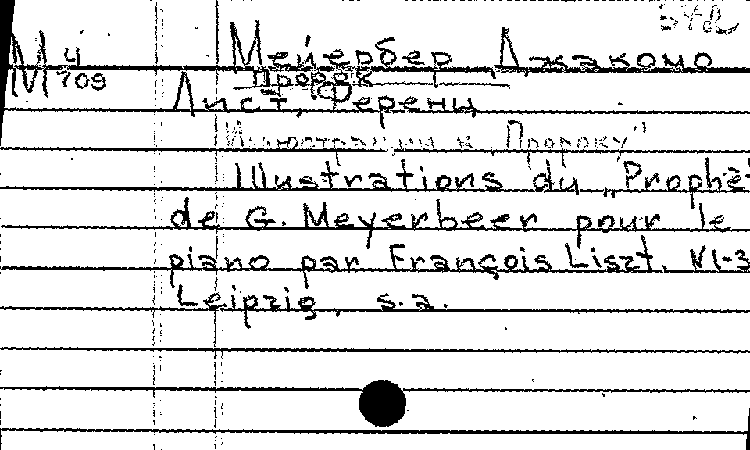 М 4
109
Мейербер, Джакомо
Пророк
Лист, Ференц
Иллюстрации к „Пророку"
Illustrations du „Prophè
de G. Meyerbeer pour le
piano par François Liszt. N1-3
Leipzig, s.a.